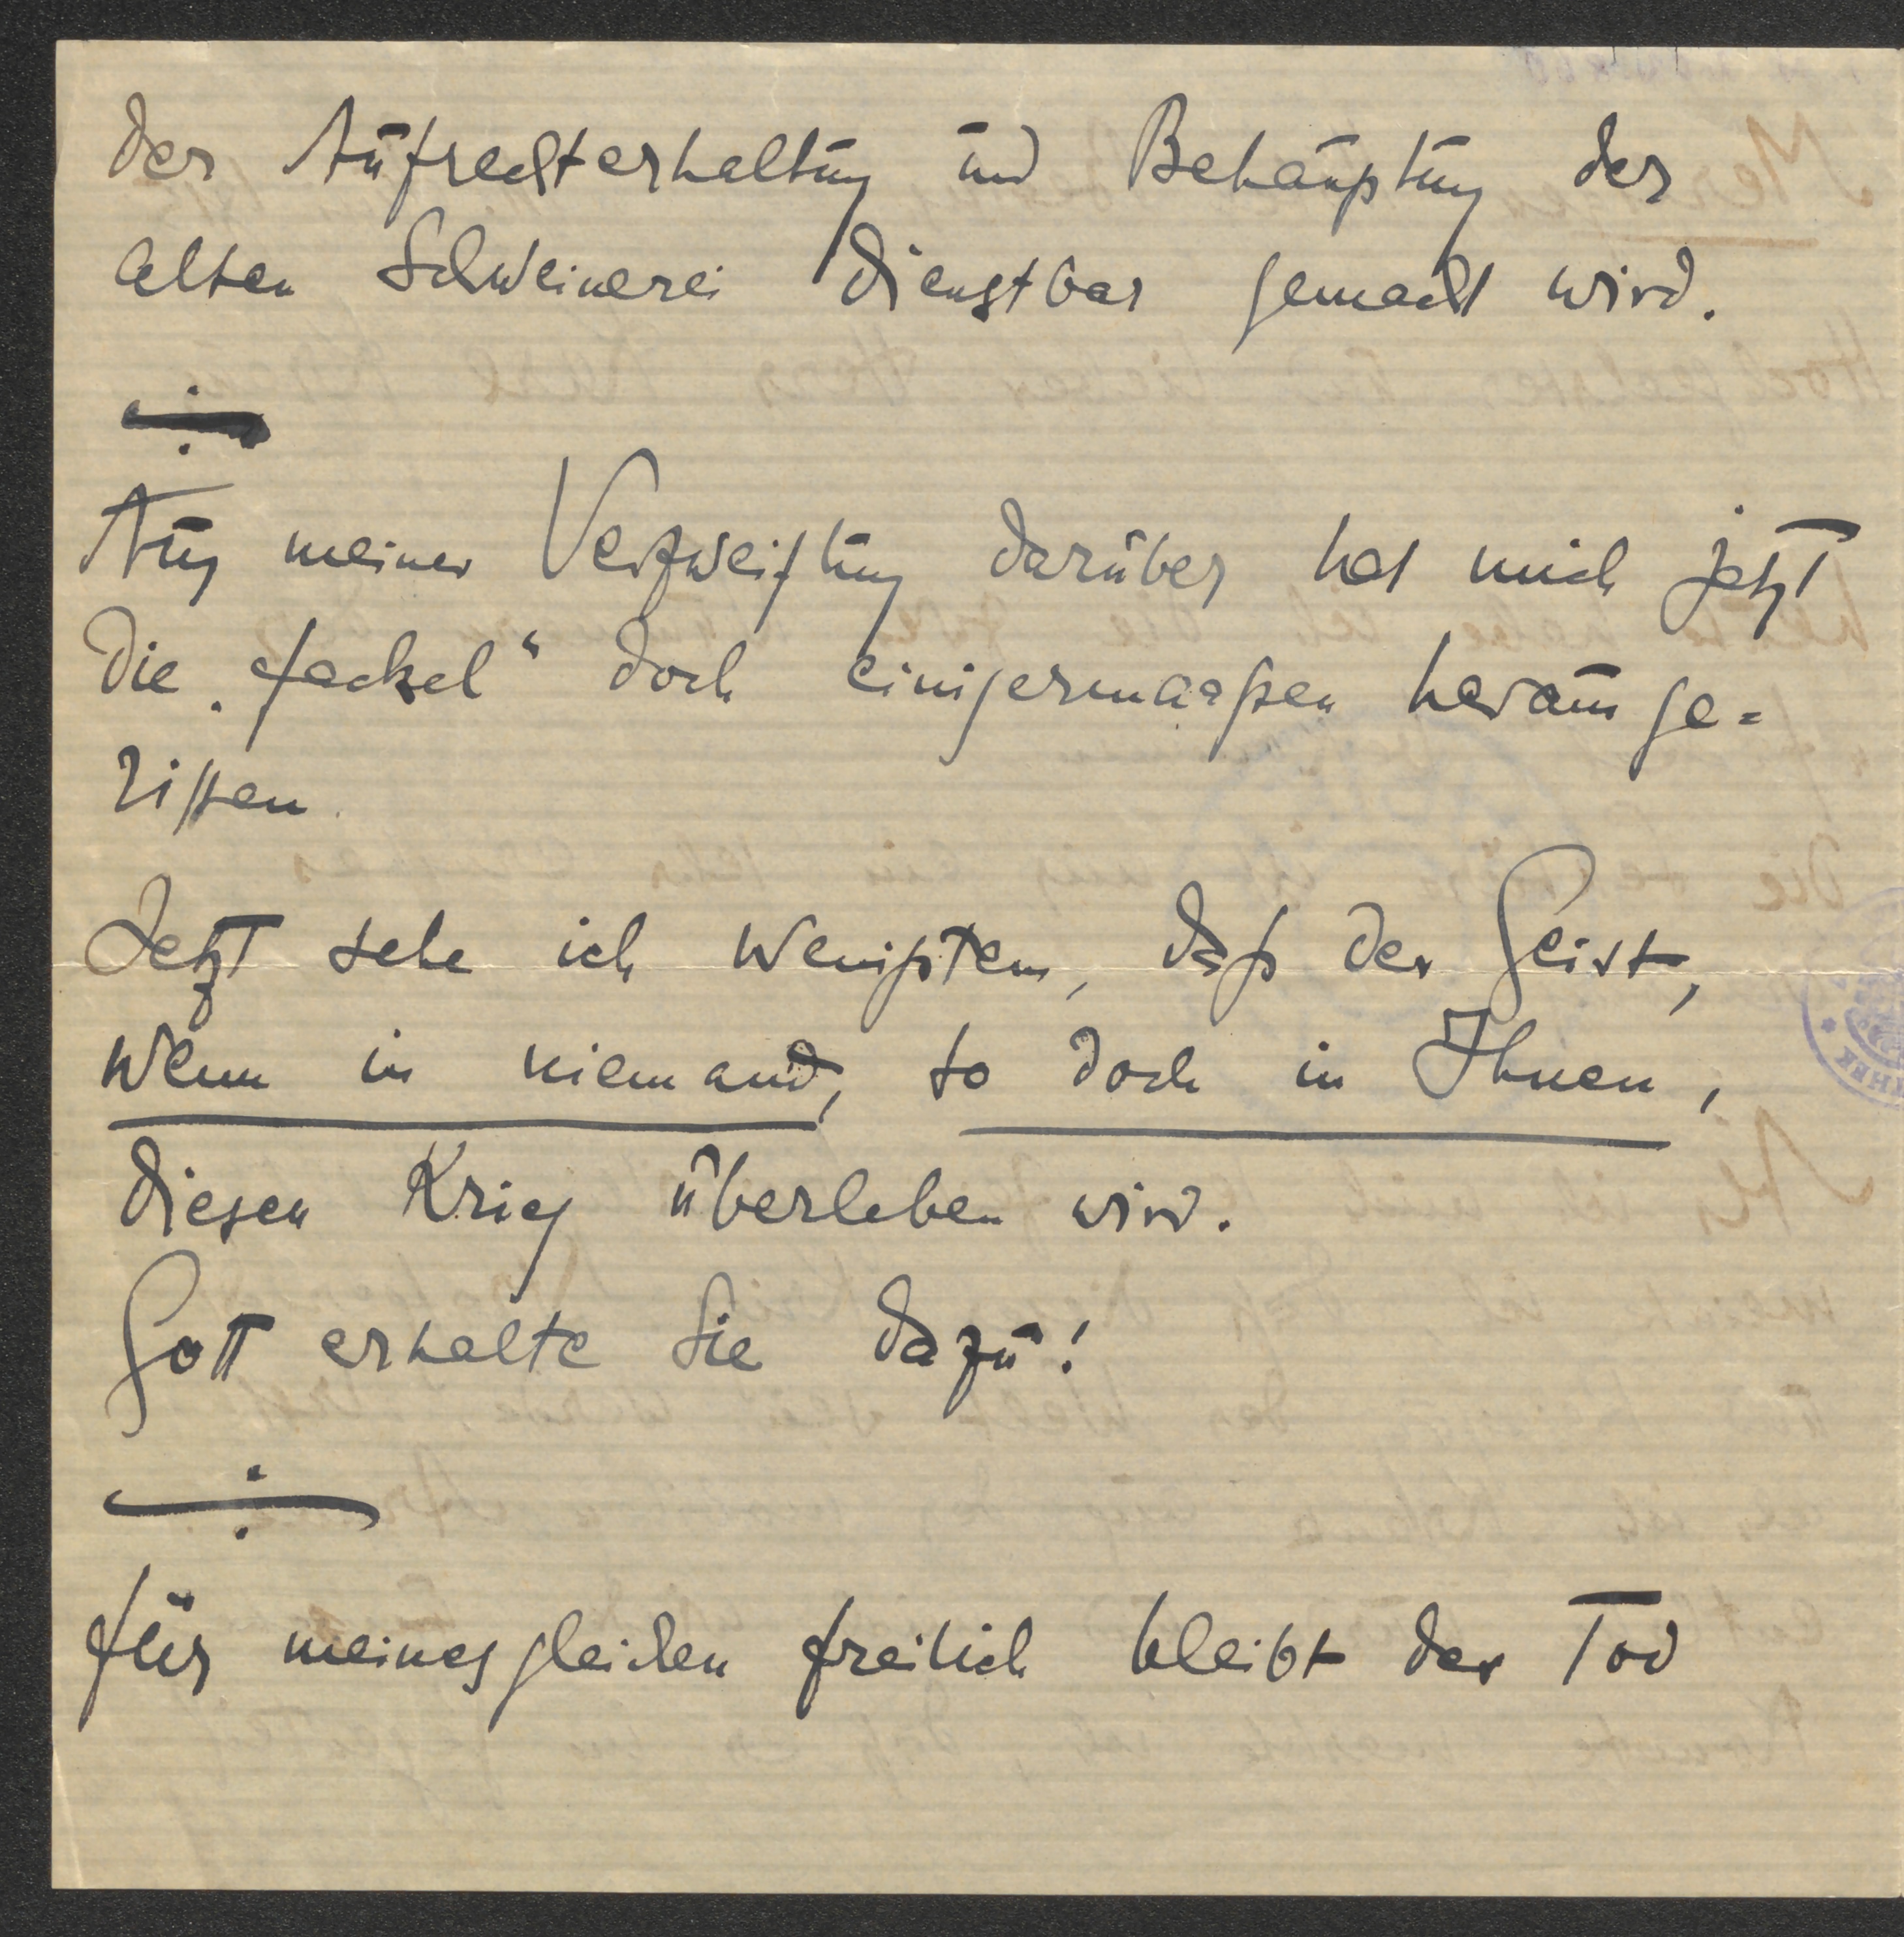 der Aufrechterhaltung und Behauptung der
alten Schweinerei dienstbar gemacht wird.
Aus meiner Verzweiflung darüber hat mich jetzt
die „Fackel“ doch einigermaaßen herausge=
rissen.
Jetzt sehe ich wenigstens, daß der Geist,
wenn in niemand, so doch in Ihnen,
diesen Krieg überleben wird.
Gott erhalte Sie dazu!
Für meinesgleichen freilich bleibt der Tod